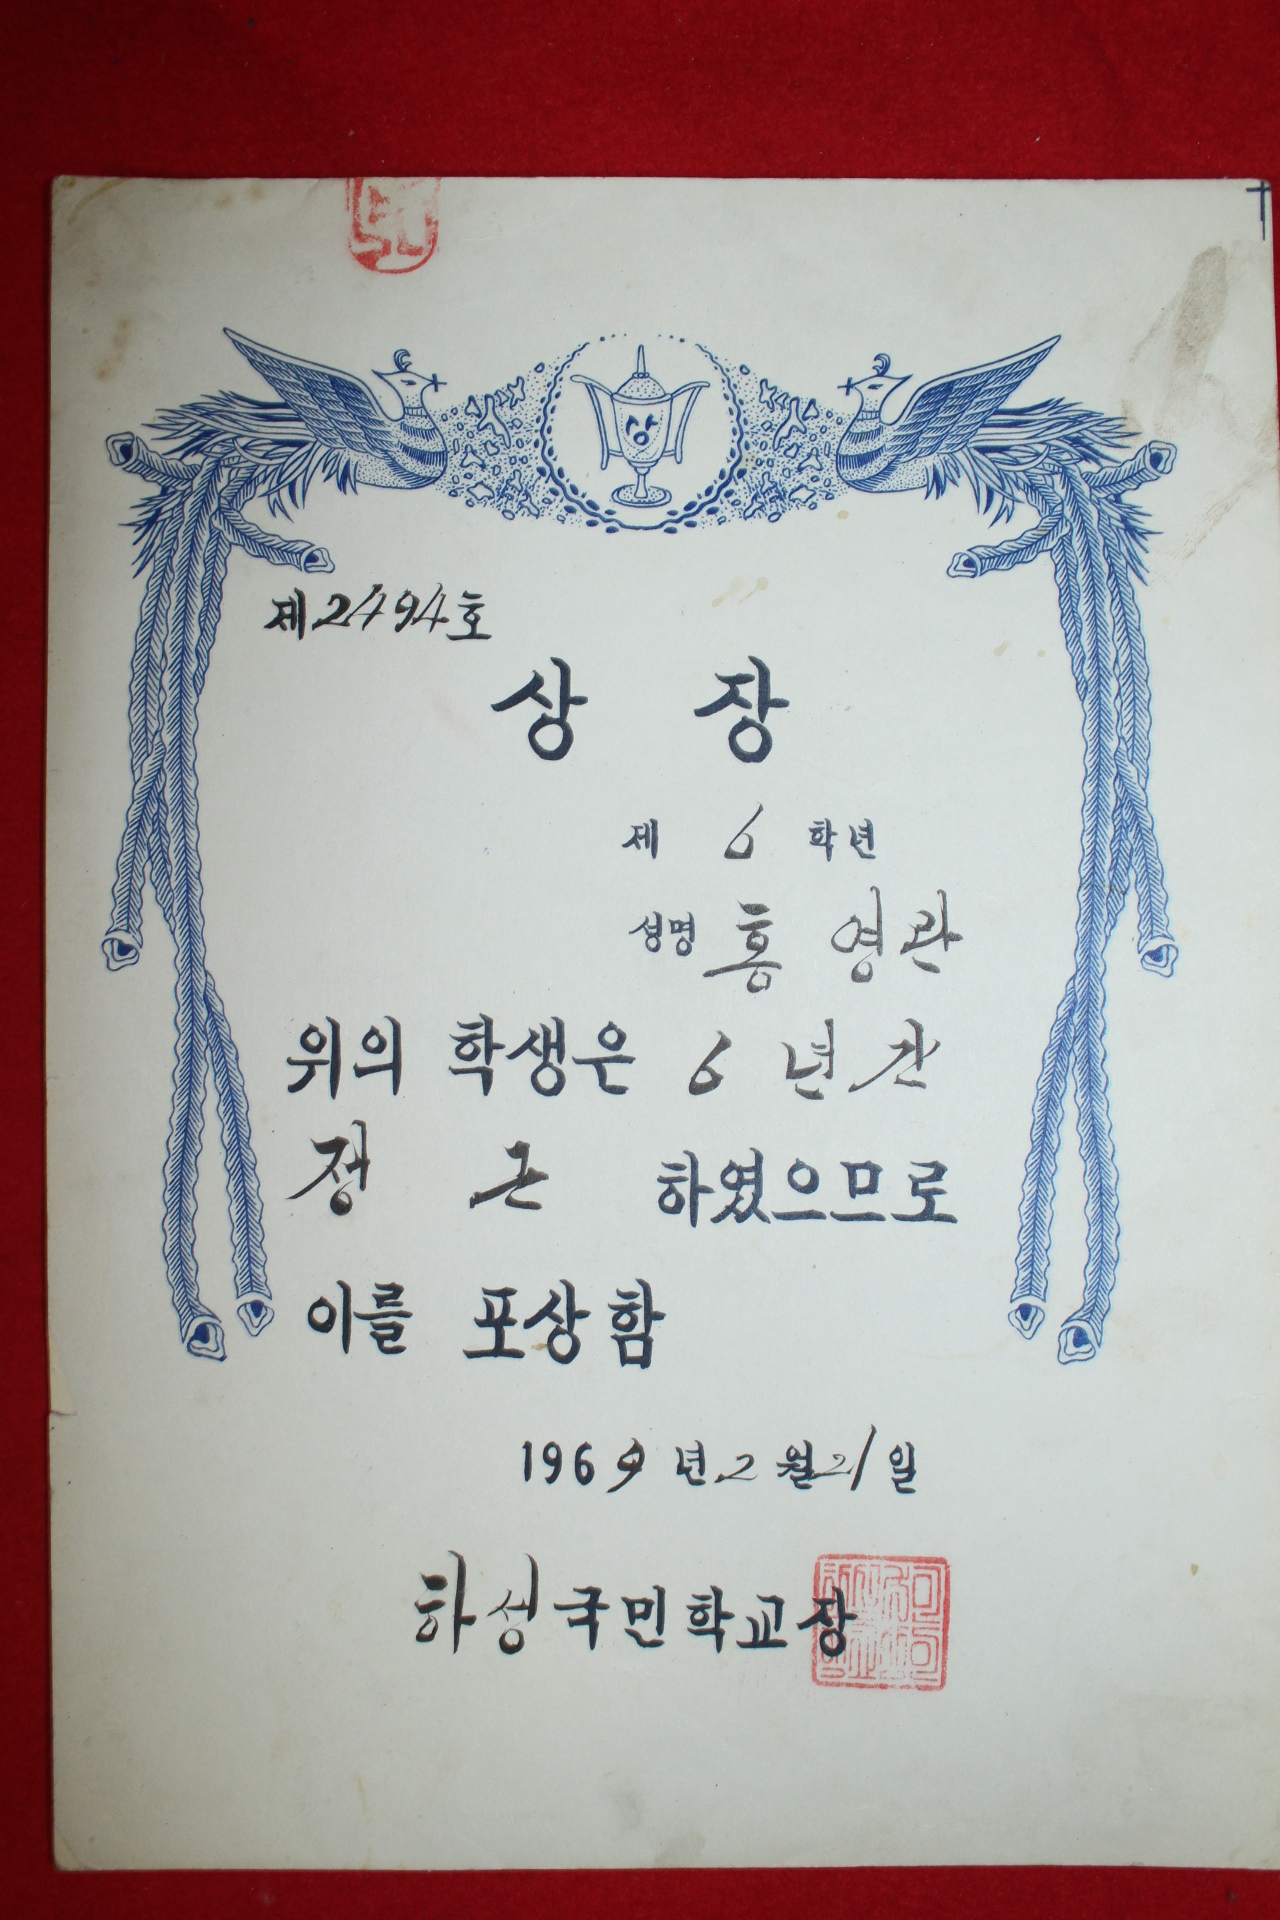 상
제2494호
상 장
제 6 학년
성명 홍 영관
위의 학생은 6 년간
정 근 하였으므로
이를 포상함
1969년 2월 21일
하성국민학교장